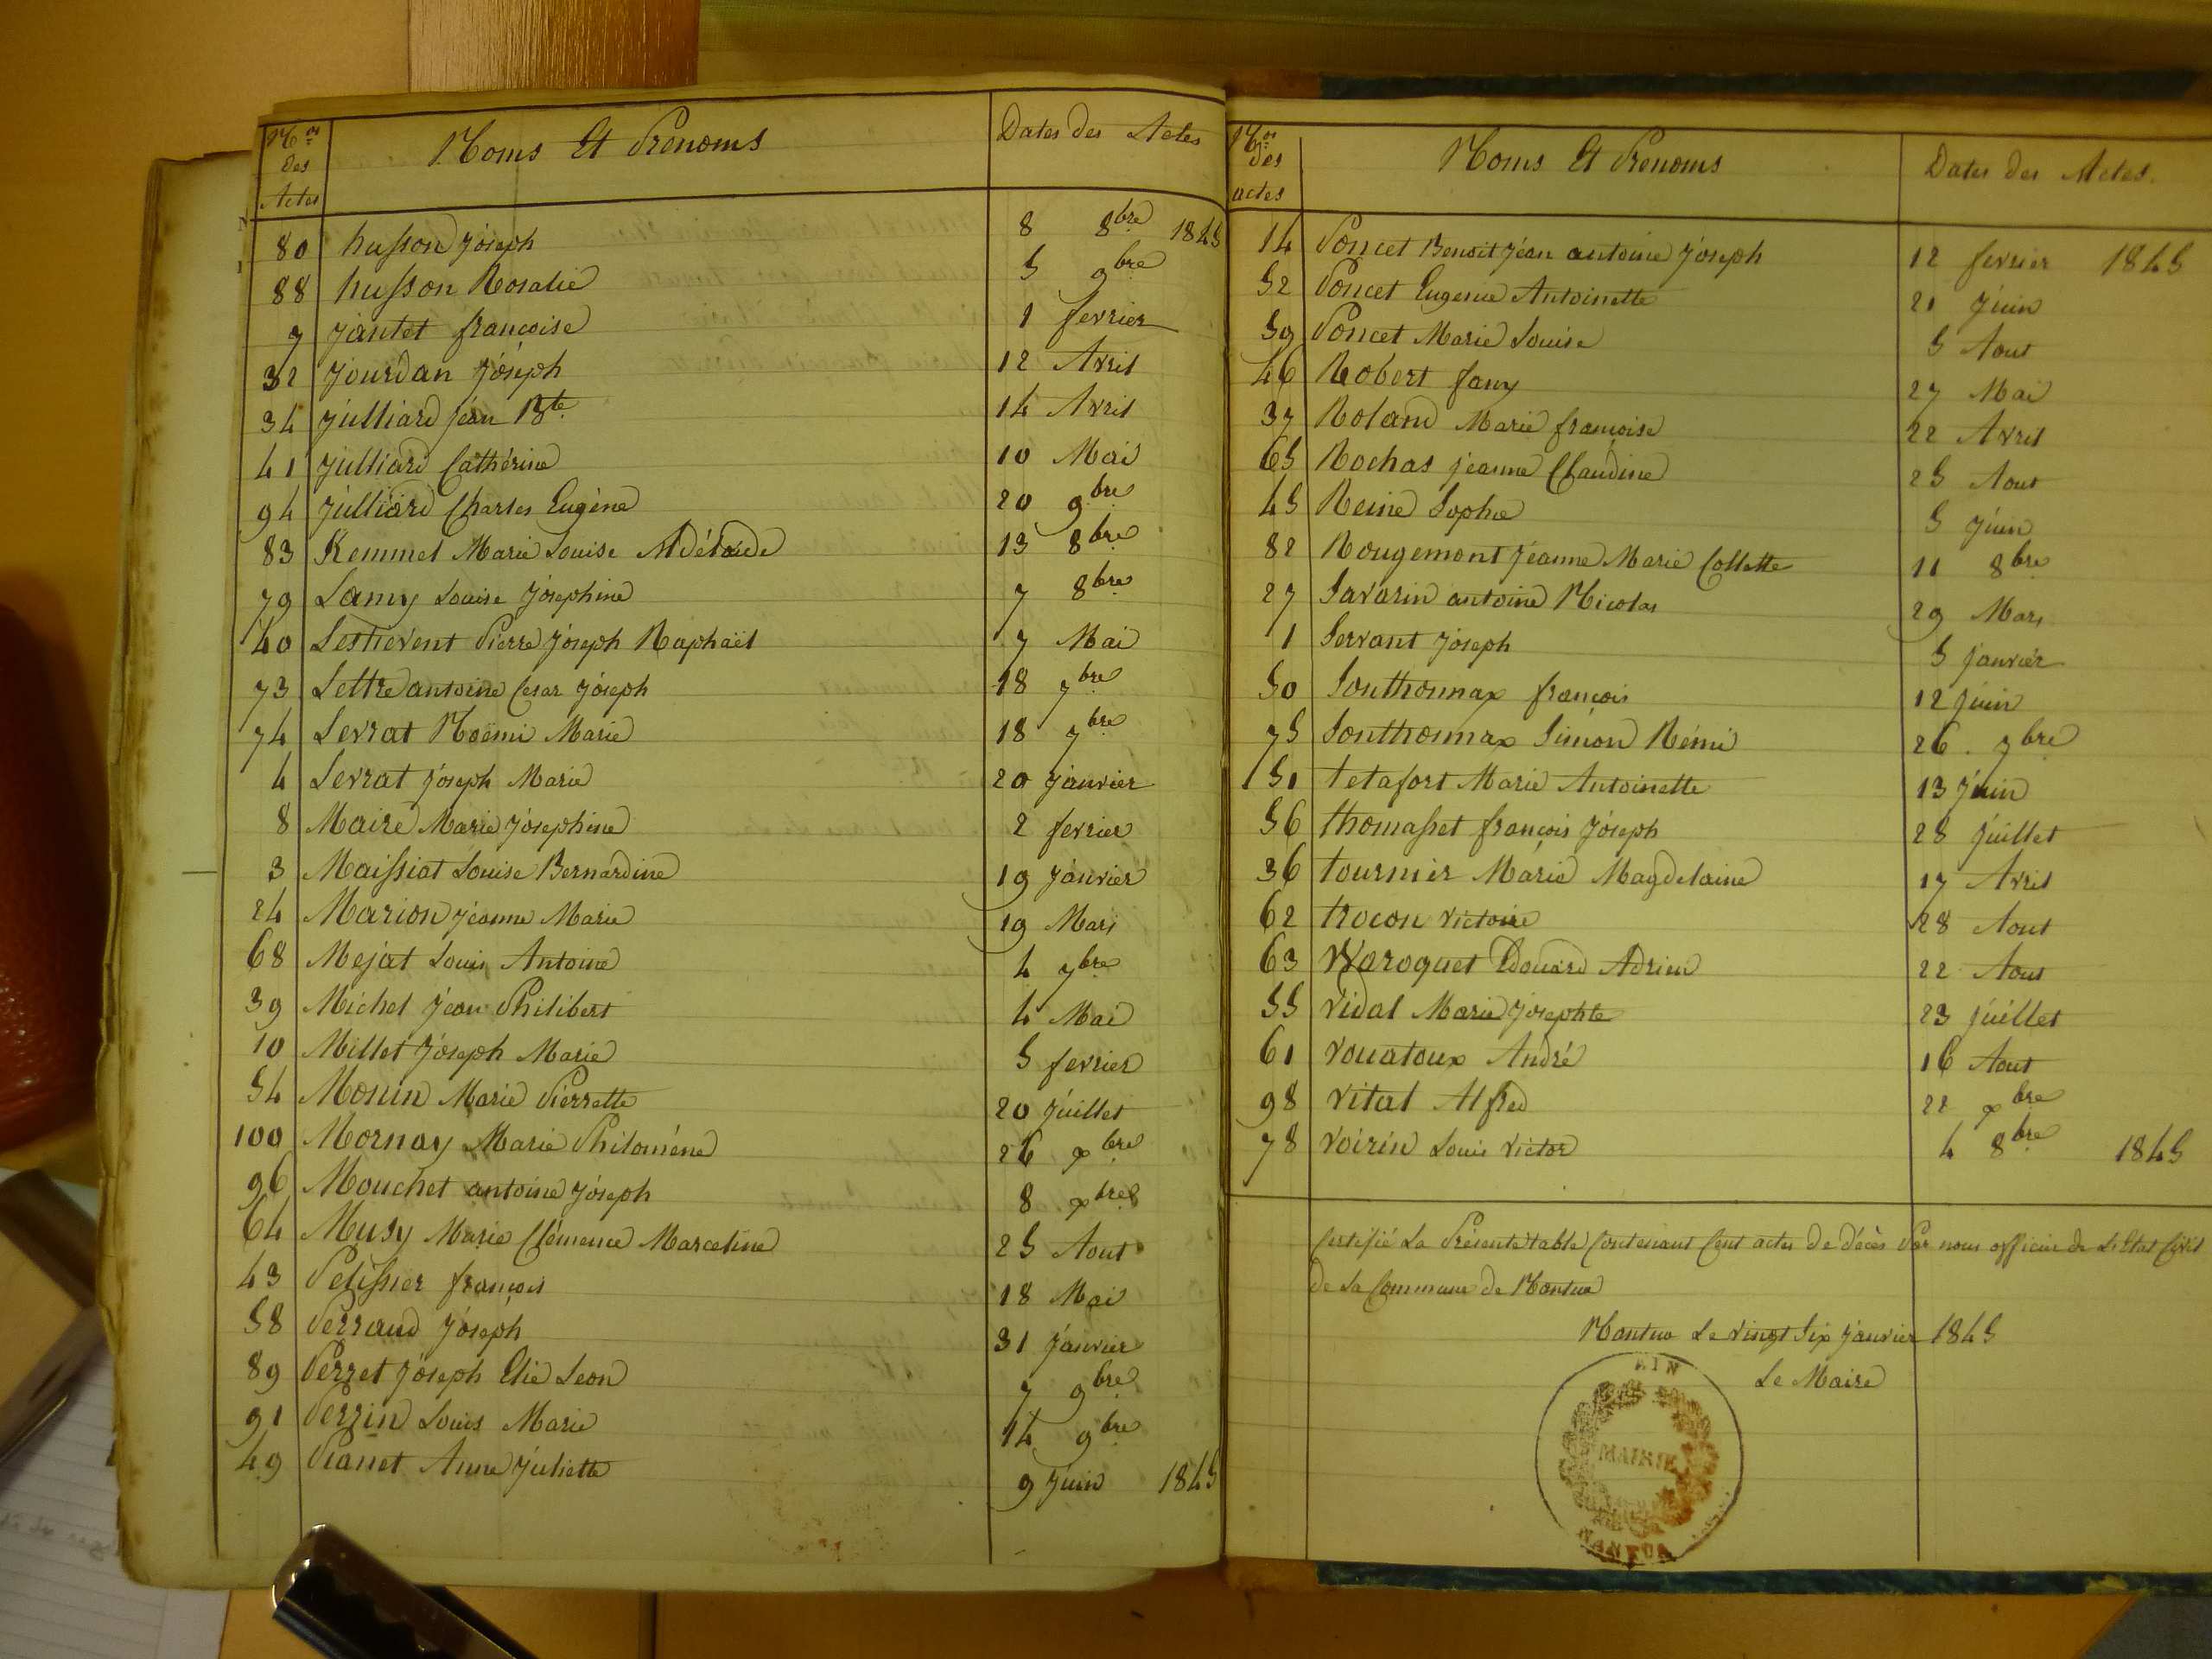 Nos des Actes Noms Et Prenoms Dates des Actes
80 husson Joseph 8 8bre 1845
88 husson Rosalie 5 9bre
7 Jantet françoise 1 fevrier
32 Jourdan Joseph 12 Avril
34 Julliard Jean Bte 14 Avril
41 Julliard Cathérine 10 Mai
94 Julliard Charles Eugène 20 9bre
83 Kemmel Marie Louise Adélaide 13 8bre
79 Lamy Louise Josephine 7 8bre
40 Lestievent Pierre Joseph Raphaël 7 Mai
73 Lettre antoine Cesar Joseph 18 7bre
74 Levrat Noëmi Marie 18 7bre
4 Levrat Joseph Marie 20 Janvier
8 Maire Marie Josephine 2 fevrier
3 Maissiat Louise Bernardine 19 Janvier
24 Marion Jeanne Marie 19 Mars
68 Mejat Louis Antoine 4 7bre
39 Michel Jean Philibert 4 Mai
10 Millet Joseph Marie 5 fevrier
54 Monin Marie Pierrette 20 Juillet
100 Mornay Marie Philoméne 26 xbre
96 Mouchet antoine Joseph 8 xbre
64 Musy Marie Clémence Marceline 25 Aout
43 Pelissier françois 18 Mai
58 Perraud Joseph 31 Janvier
89 Perret Joseph Elie Leon 7 9bre
91 Perrin Louis Marie 14 9bre
49 Pianet Anne Juliette 9 Juin 1845
Nos des actes Noms Et Prenoms Dates des Actes.
14 Poncet Benoit Jean antoine Joseph 12 fevrier 1845
52 Poncet Eugenie Antoinette 21 Juin
59 Poncet Marie Louise 5 Aout
46 Robert fany 27 Mai
37 Roland Marie françoise 22 Avril
65 Rochas jeanne Claudine 25 Aout
45 Reine Sophie 5 Juin
82 Rougemont Jeanne Marie Collette 11 8bre
27 Savarin antoine Nicolas 29 Mars
1 Servant Joseph 5 janvier
50 Sonthonnax françois 12 Juin
75 Sonthonnax Simon Rémi 26 7bre
51 tetafort Marie Antoinette 13 Juin
56 thomasset françois Joseph 28 Juillet
36 tournier Marie Magdelaine 17 Avril
62 trocon victoire 28 Aout
63 Waroquet Edouard Adrien 22 Aout
55 vidal Marie Josephte 23 juillet
61 vouatoux André 16 Aout
98 vital Alfred 22 xbre
78 voirin Louis victor 4 8bre 1845
Certifié La Présente table Contenant Cent actes de décès Par nous officier de L'Etat Civil
de La Commune de Nantua
Nantua Le vingt Six janvier 1845
Le Maire
AIN
MAIRIE
NANTUA